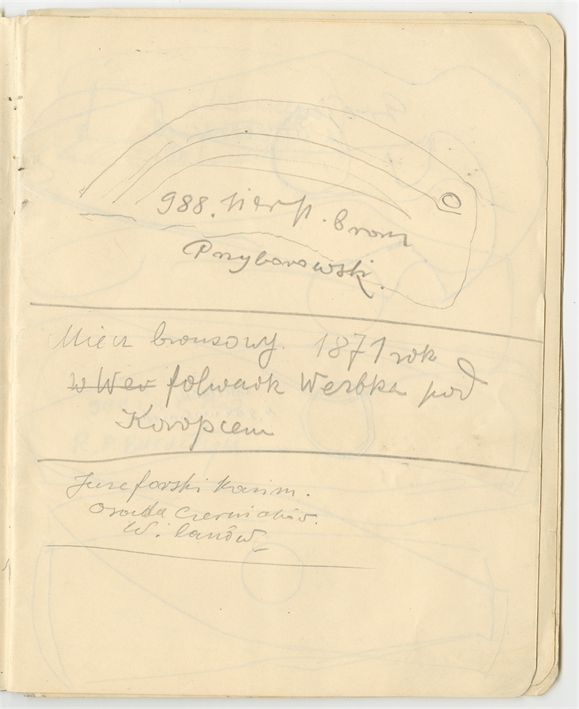 988. sierp. bronz
Przyborowski.
Miecz bronzowy. 1871 rok
w Wer folwark Werbka pod
Koropcem
Juzeforski Kazim.
osada Czerniaków.
W. lanów